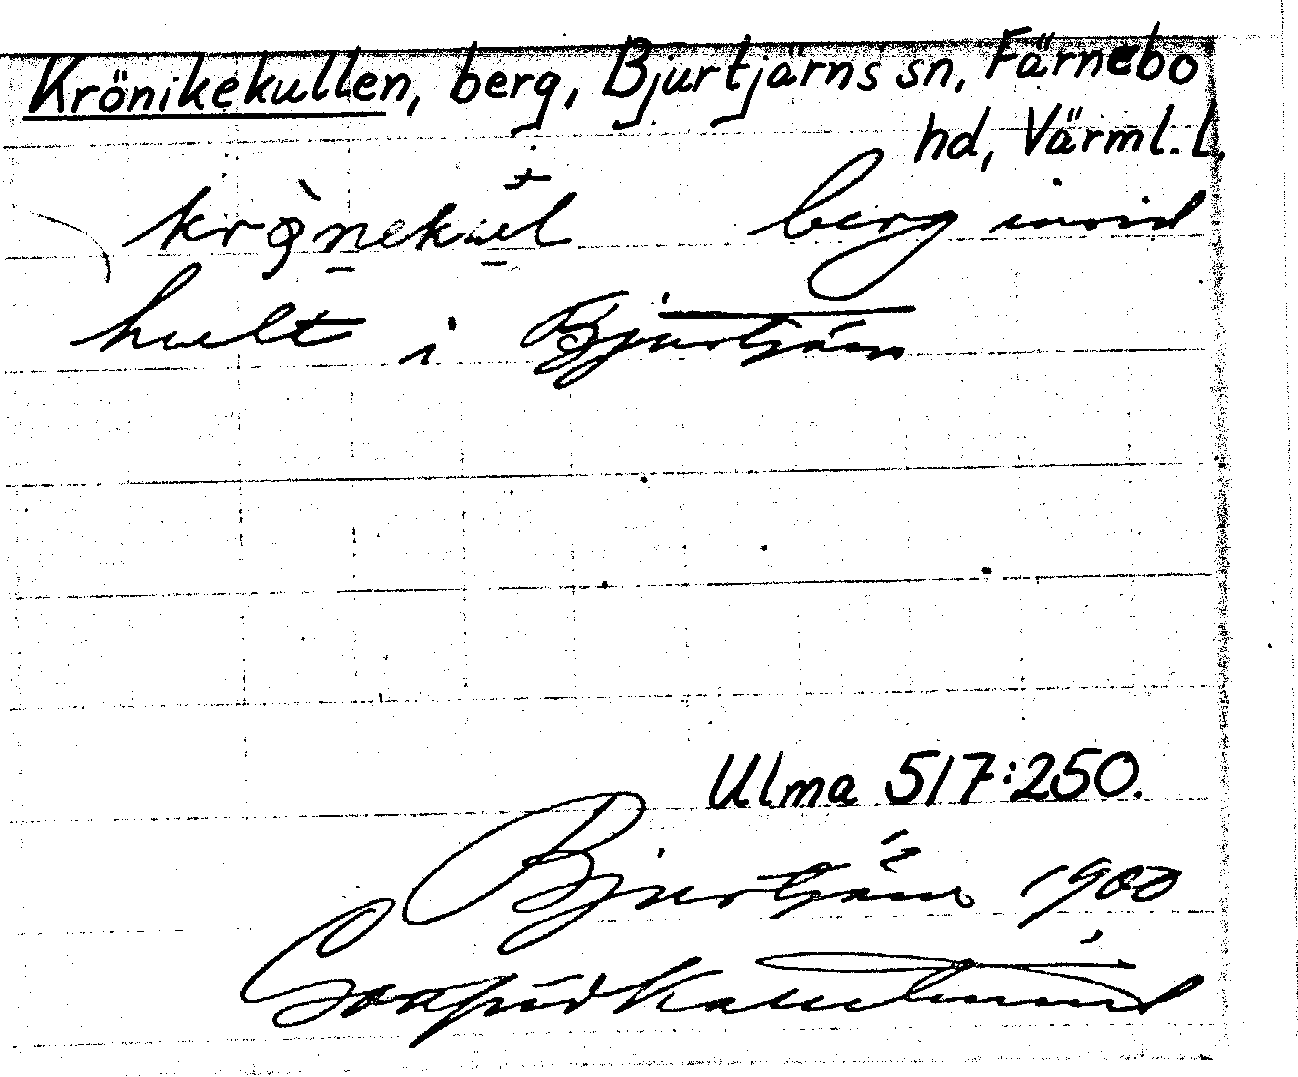 Krönikekullen, berg, Bjurtjärns sn, Färnebo
hd, Värml. l.
berg invid
hult i Bjurtjärn
Ulma 517:250.
Bjurtjärn 1900